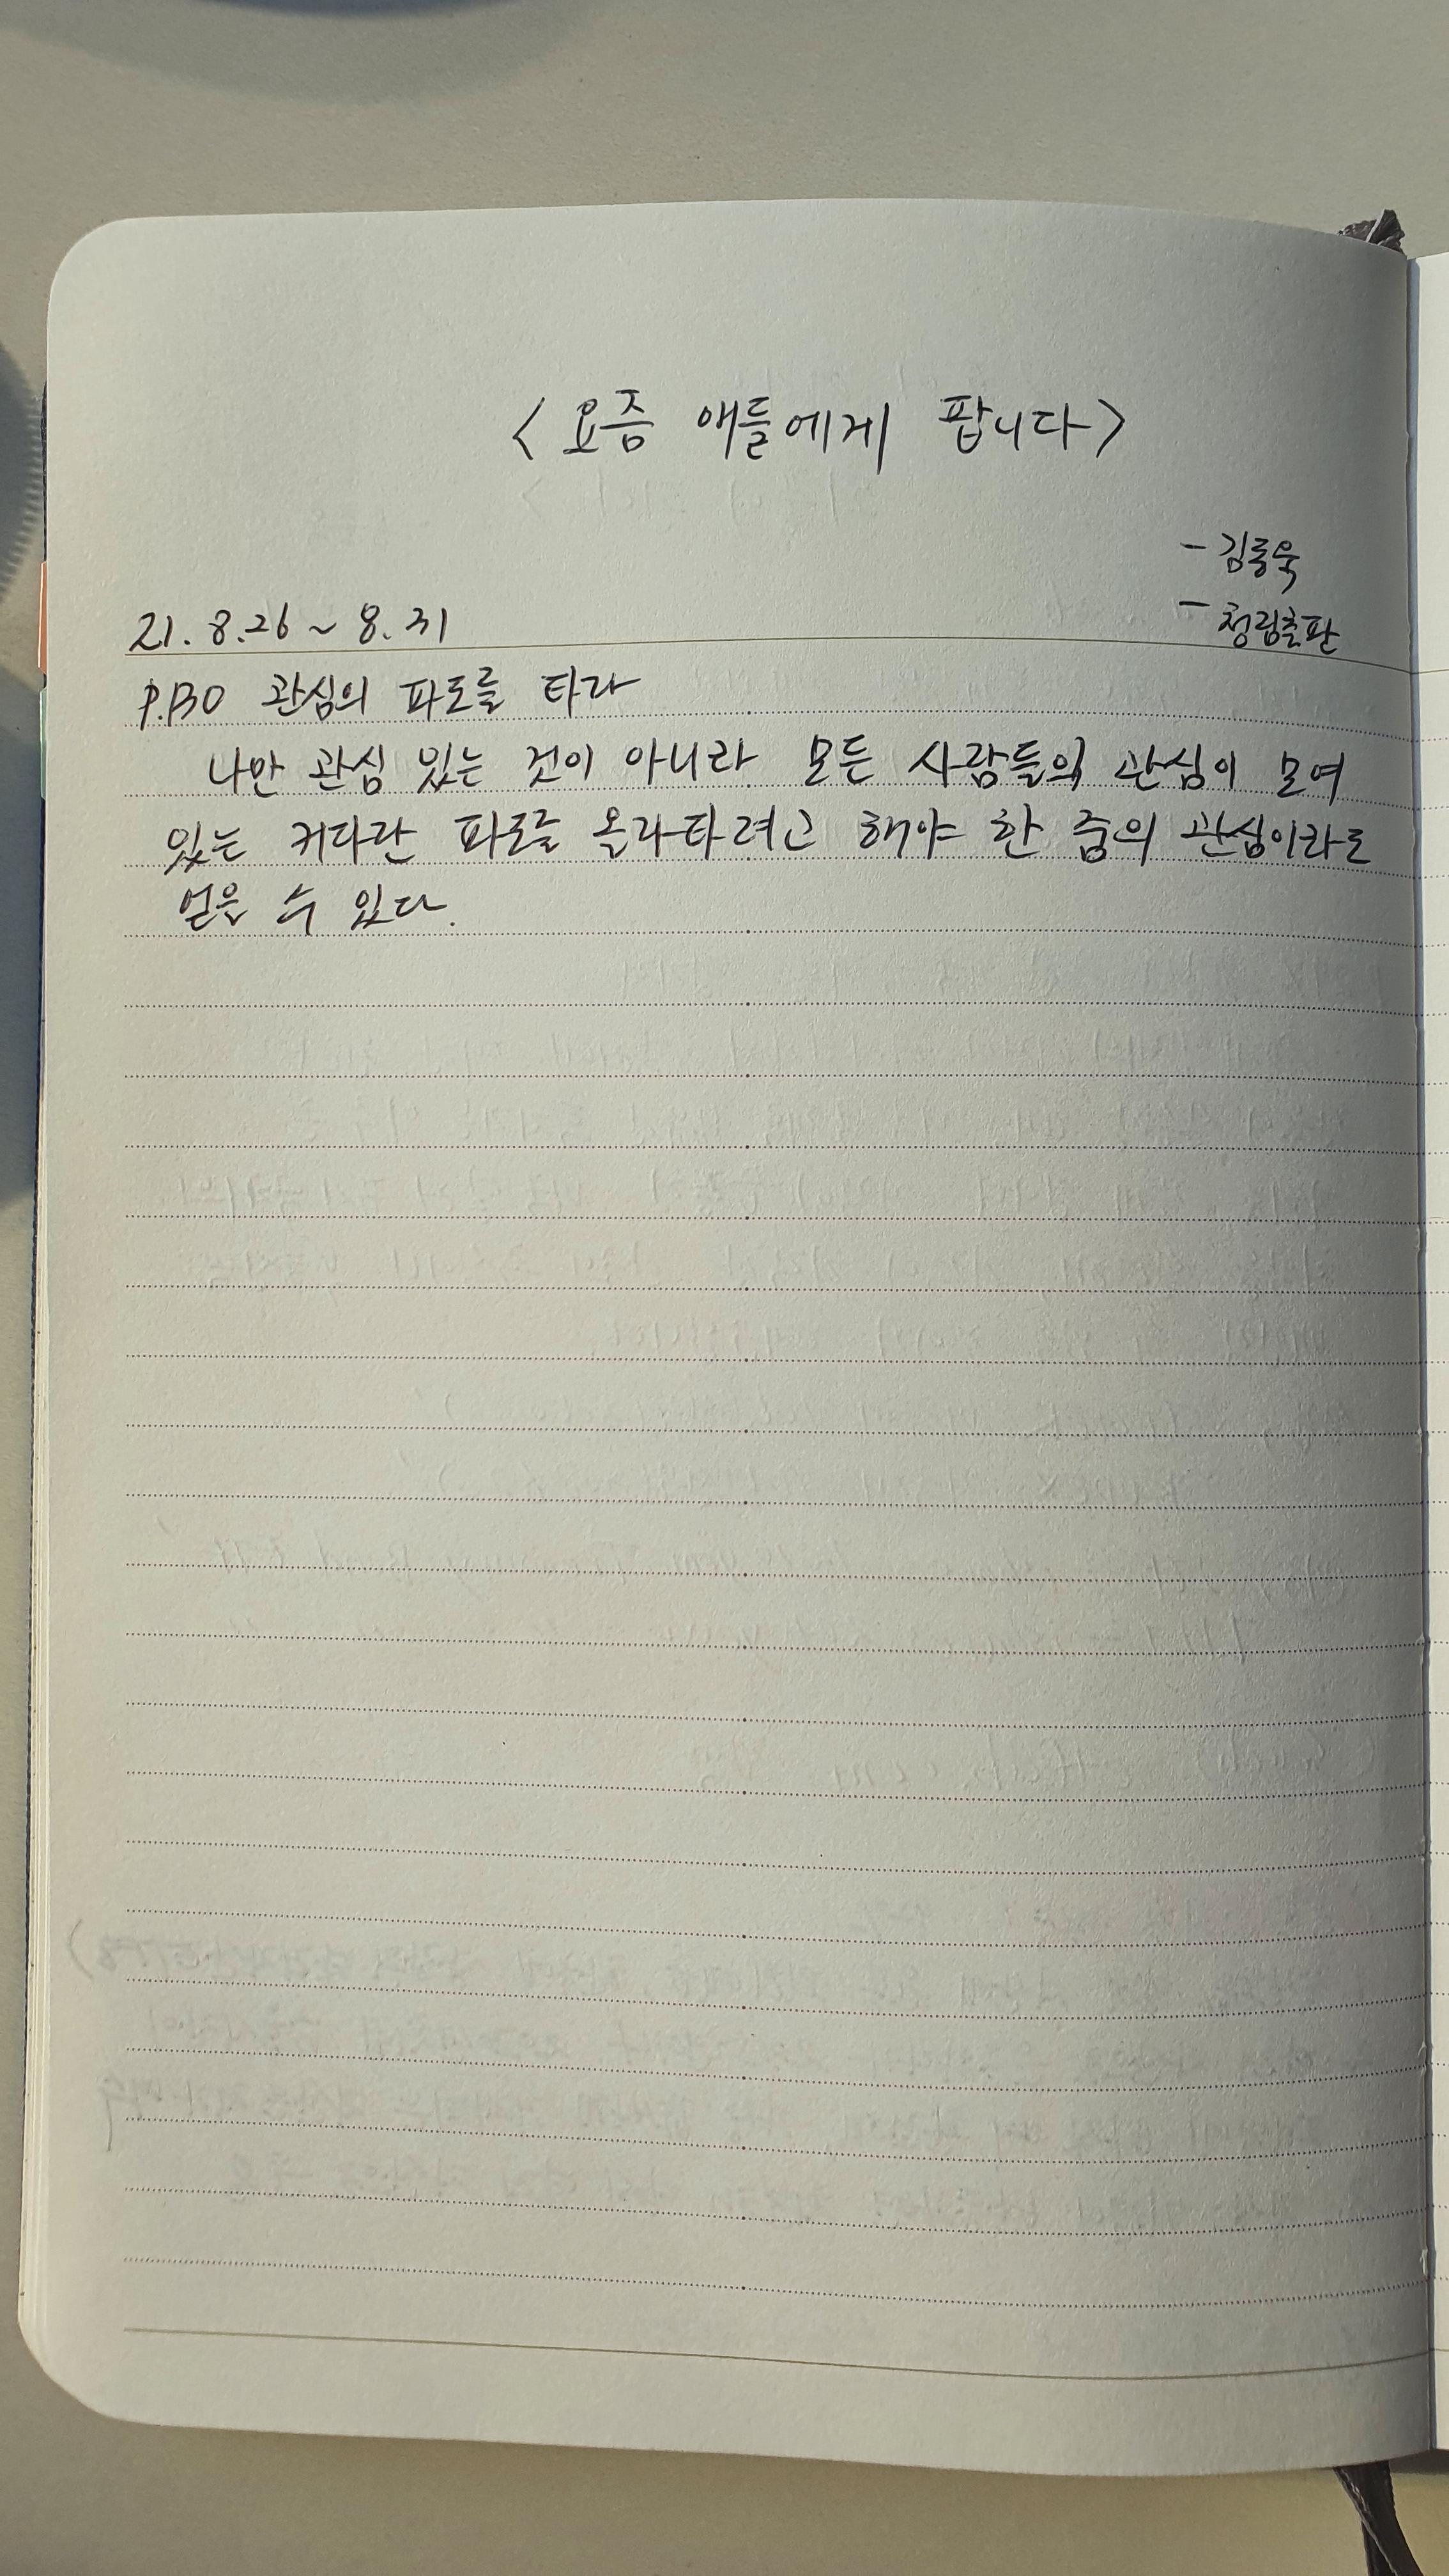 <요즘 애들에게 팝니다>
- 김동욱
- 청림출판
21. 8.26 ~ 8. 31
P.130 관심의 파도를 타라
나만 관심 있는 것이 아니라 모든 사람들의 관심이 모여
있는 커다란 파도를 올라타려고 해야 한 줌의 관심이라도
얻을 수 있다.